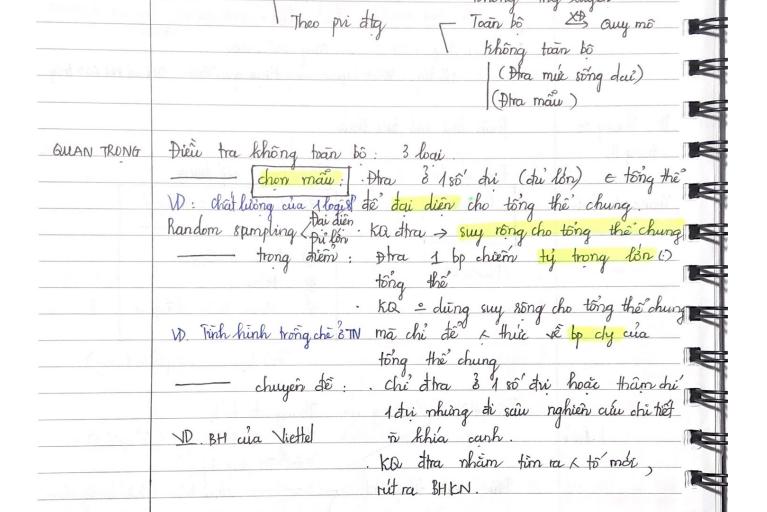 Theo pvi đtg
Toàn bộ XĐ Quy mô
Không toàn bộ
(Đtra mức sống dcư)
(Đtra mẫu)
QUAN TRỌNG Điều tra không toàn bộ: 3 loại.
chọn mẫu: · Đtra ở 1 số đvị (đủ lớn) ∈ tổng thể
VD: chất lượng của 1 để đại diện cho tổng thể chung.
Random sampling < Đại diện Đủ lớn · KQ đtra → suy rộng cho tổng thể chung
trọng điểm: Đtra 1 bp chiếm tỷ trọng lớn (-)
tổng thể
· KQ dùng suy rộng cho tổng thể chung
VD. Tình hình trồng chè ở TN mà chỉ để thức về bp c/y của
tổng thể chung
chuyên đề: · Chỉ đtra ở 1 số đvị hoặc thậm chí
1 đvị nhưng đi sâu nghiên cứu chi tiết
VD. BH của Viettel ñ khía cạnh.
· KQ đtra nhằm tìm ra tố mới,
rút ra BHKN.